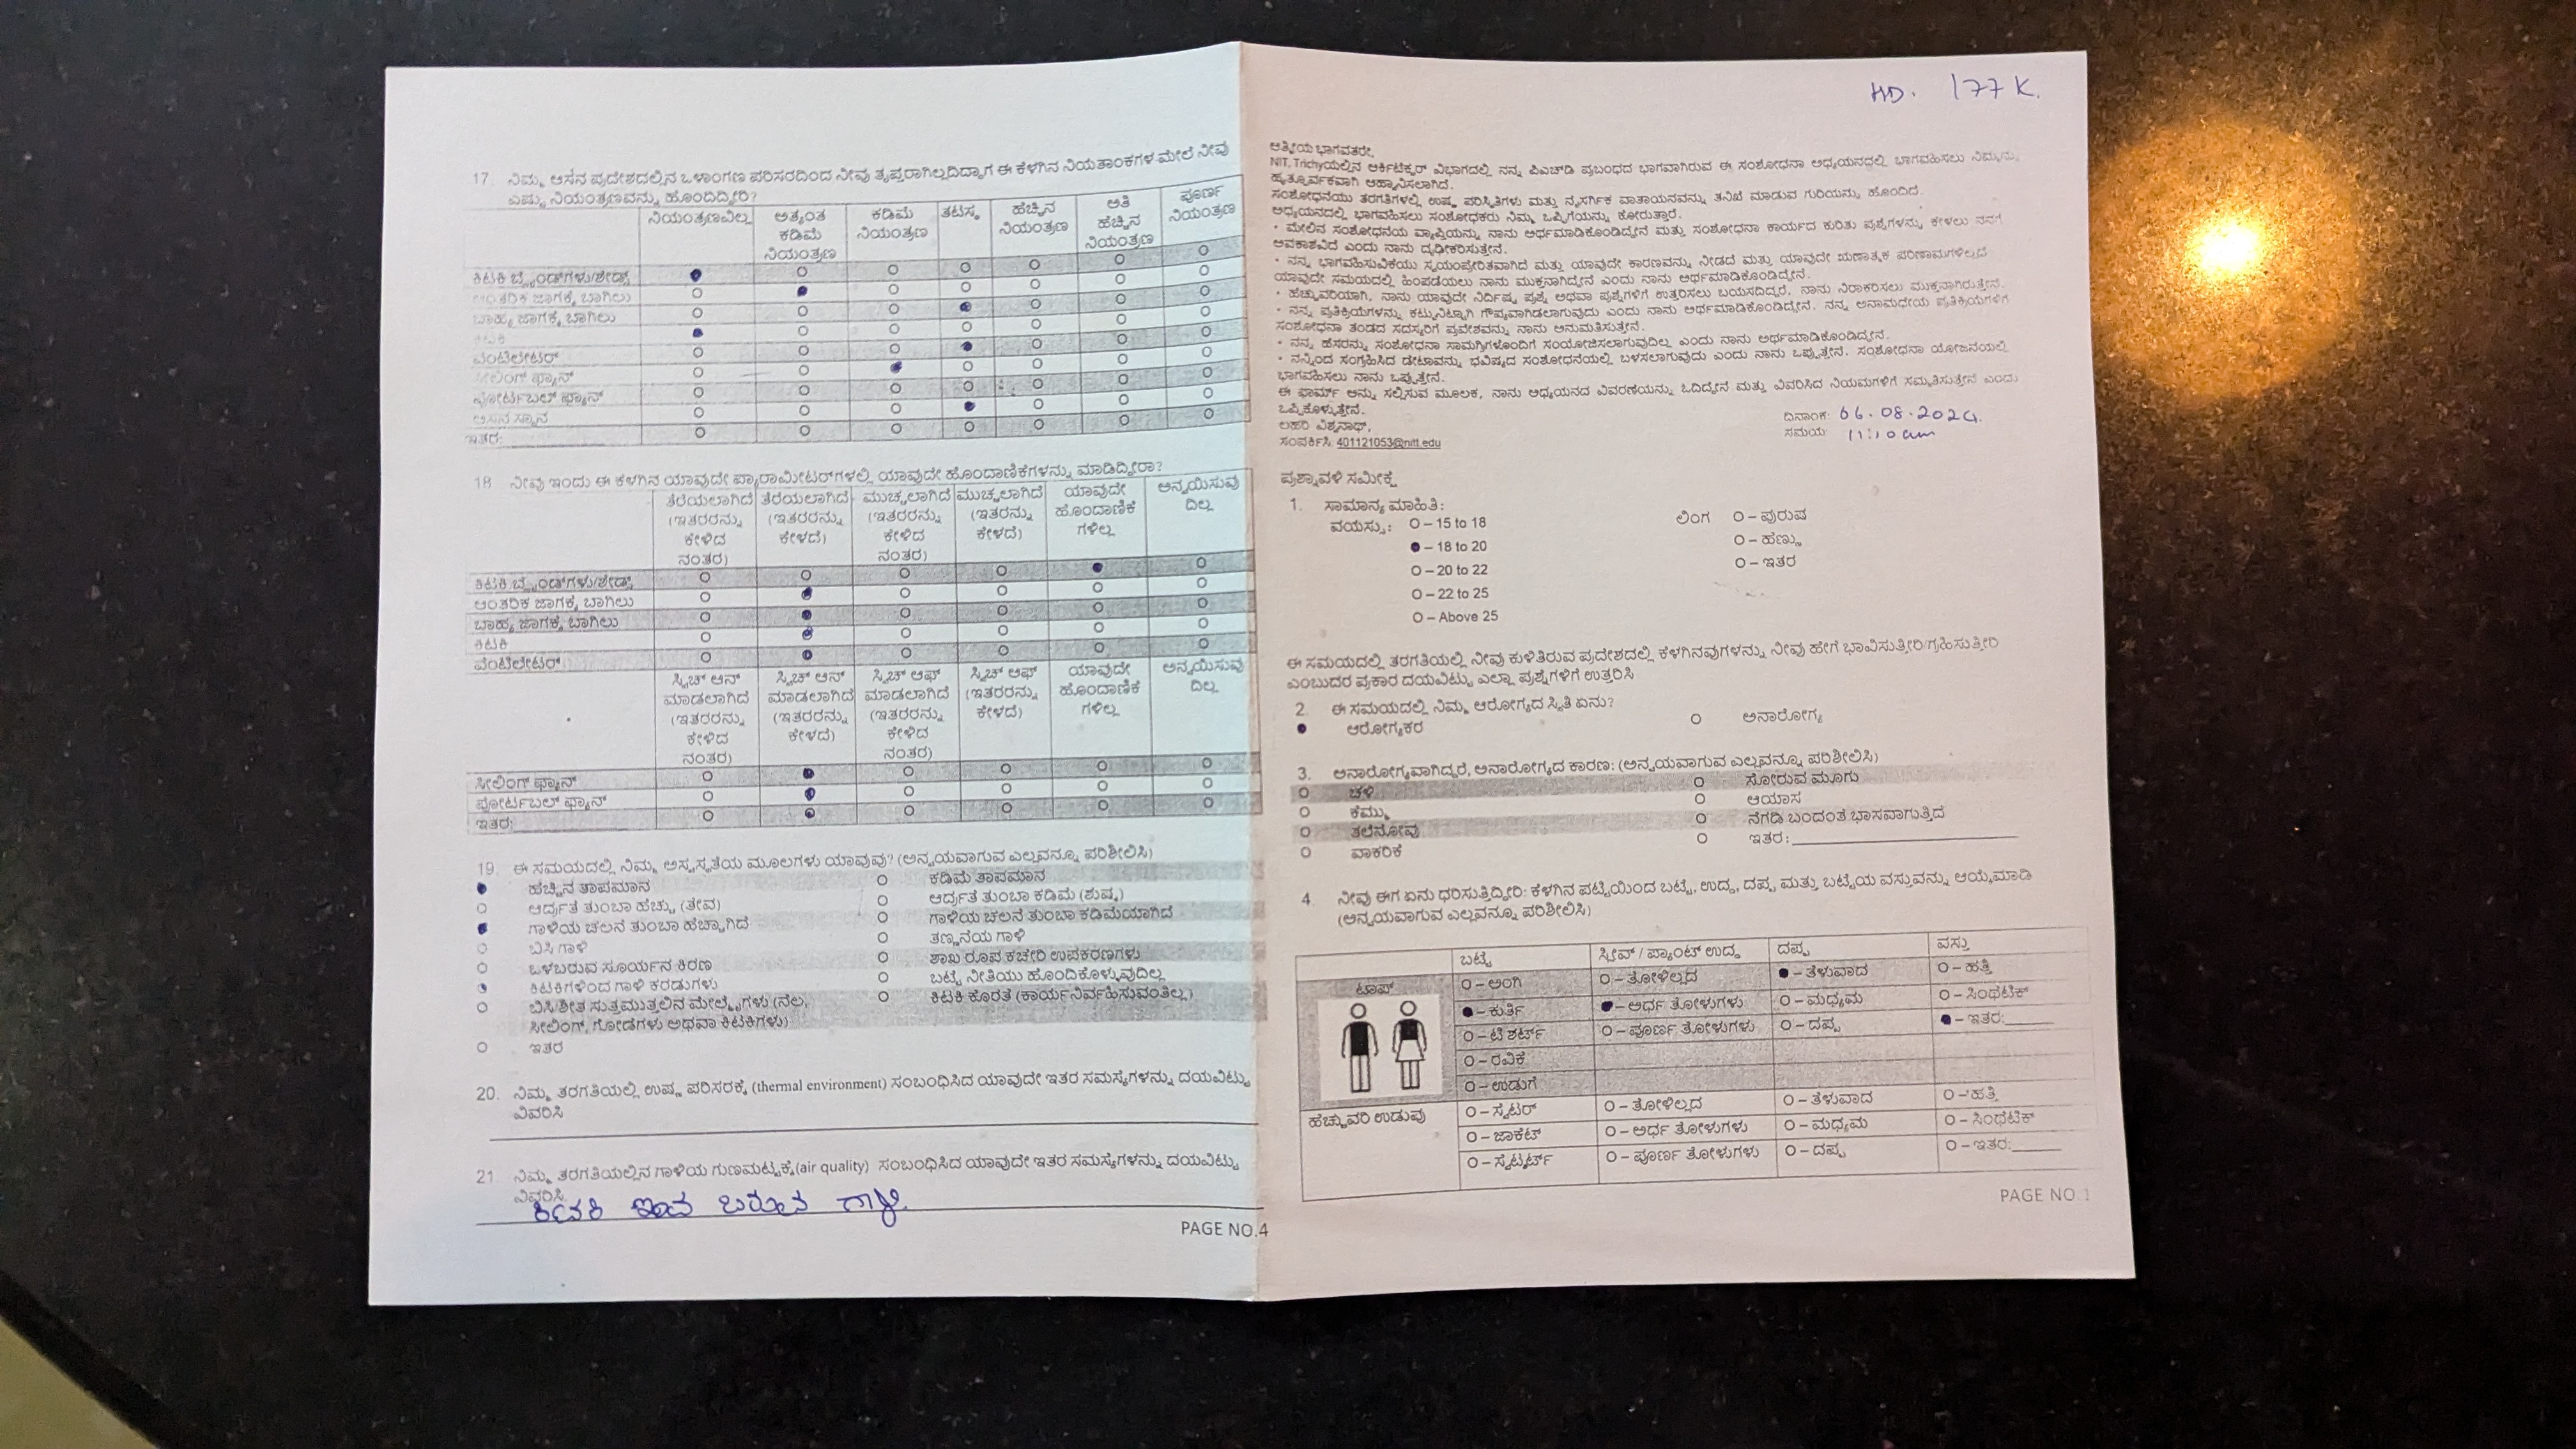 17. ನಿಮ್ಮ ಆಸನ ಪ್ರದೇಶದಲ್ಲಿನ ಒಳಾಂಗಣ ಪರಿಸರದಿಂದ ನೀವು ತೃಪ್ತರಾಗಿಲ್ಲದಿದ್ದಾಗ ಈ ಕೆಳಗಿನ ನಿಯತಾಂಕಗಳ ಮೇಲೆ ನೀವು
ಎಷ್ಟು ನಿಯಂತ್ರಣವನ್ನು ಹೊಂದಿದ್ದೀರಿ?
ನಿಯಂತ್ರಣವಿಲ್ಲ ಅತ್ಯಂತ ಕಡಿಮೆ ನಿಯಂತ್ರಣ ಕಡಿಮೆ ನಿಯಂತ್ರಣ ತಟಸ್ಥ ಹೆಚ್ಚಿನ ನಿಯಂತ್ರಣ ಅತಿ ಹೆಚ್ಚಿನ ನಿಯಂತ್ರಣ ಪೂರ್ಣ ನಿಯಂತ್ರಣ
ಕಿಟಕಿ ಬ್ಲೈಂಡ್‌ಗಳು/ಶೇಡ್ಸ್
ಆಂತರಿಕ ಜಾಗಕ್ಕೆ ಬಾಗಿಲು
ಬಾಹ್ಯ ಜಾಗಕ್ಕೆ ಬಾಗಿಲು
ಕಿಟಕಿ
ವೆಂಟಿಲೇಟರ್
ಸೀಲಿಂಗ್ ಫ್ಯಾನ್
ಪೋರ್ಟಬಲ್ ಫ್ಯಾನ್
ಆಸನ ಸ್ಥಾನ
ಇತರ:
18. ನೀವು ಇಂದು ಈ ಕೆಳಗಿನ ಯಾವುದೇ ಪ್ಯಾರಾಮೀಟರ್‌ಗಳಲ್ಲಿ ಯಾವುದೇ ಹೊಂದಾಣಿಕೆಗಳನ್ನು ಮಾಡಿದ್ದೀರಾ?
ತೆರೆಯಲಾಗಿದೆ (ಇತರರನ್ನು ಕೇಳಿದ ನಂತರ) ತೆರೆಯಲಾಗಿದೆ (ಇತರರನ್ನು ಕೇಳದೆ) ಮುಚ್ಚಲಾಗಿದೆ (ಇತರರನ್ನು ಕೇಳಿದ ನಂತರ) ಮುಚ್ಚಲಾಗಿದೆ (ಇತರರನ್ನು ಕೇಳದೆ) ಯಾವುದೇ ಹೊಂದಾಣಿಕೆಗಳಿಲ್ಲ ಅನ್ವಯಿಸುವುದಿಲ್ಲ
ಕಿಟಕಿ ಬ್ಲೈಂಡ್‌ಗಳು/ಶೇಡ್ಸ್
ಆಂತರಿಕ ಜಾಗಕ್ಕೆ ಬಾಗಿಲು
ಬಾಹ್ಯ ಜಾಗಕ್ಕೆ ಬಾಗಿಲು
ಕಿಟಕಿ
ವೆಂಟಿಲೇಟರ್
ಸ್ವಿಚ್ ಆನ್ ಮಾಡಲಾಗಿದೆ (ಇತರರನ್ನು ಕೇಳಿದ ನಂತರ) ಸ್ವಿಚ್ ಆನ್ ಮಾಡಲಾಗಿದೆ (ಇತರರನ್ನು ಕೇಳದೆ) ಸ್ವಿಚ್ ಆಫ್ ಮಾಡಲಾಗಿದೆ (ಇತರರನ್ನು ಕೇಳಿದ ನಂತರ) ಸ್ವಿಚ್ ಆಫ್ (ಇತರರನ್ನು ಕೇಳದೆ) ಯಾವುದೇ ಹೊಂದಾಣಿಕೆಗಳಿಲ್ಲ ಅನ್ವಯಿಸುವುದಿಲ್ಲ
ಸೀಲಿಂಗ್ ಫ್ಯಾನ್
ಪೋರ್ಟಬಲ್ ಫ್ಯಾನ್
ಇತರ:
19. ಈ ಸಮಯದಲ್ಲಿ ನಿಮ್ಮ ಅಸ್ವಸ್ಥತೆಯ ಮೂಲಗಳು ಯಾವುವು? (ಅನ್ವಯವಾಗುವ ಎಲ್ಲವನ್ನೂ ಪರಿಶೀಲಿಸಿ)
ಹೆಚ್ಚಿನ ತಾಪಮಾನ ಕಡಿಮೆ ತಾಪಮಾನ
ಆರ್ದ್ರತೆ ತುಂಬಾ ಹೆಚ್ಚು (ತೇವ) ಆರ್ದ್ರತೆ ತುಂಬಾ ಕಡಿಮೆ (ಶುಷ್ಕ)
ಗಾಳಿಯ ಚಲನೆ ತುಂಬಾ ಹೆಚ್ಚಾಗಿದೆ ಗಾಳಿಯ ಚಲನೆ ತುಂಬಾ ಕಡಿಮೆಯಾಗಿದೆ
ಬಿಸಿ ಗಾಳಿ ತಣ್ಣನೆಯ ಗಾಳಿ
ಒಳಬರುವ ಸೂರ್ಯನ ಕಿರಣ ಶಾಖ ರೂಪ ಕಚೇರಿ ಉಪಕರಣಗಳು
ಕಿಟಕಿಗಳಿಂದ ಗಾಳಿ ಕರಡುಗಳು ಬಟ್ಟೆ ನೀತಿಯು ಹೊಂದಿಕೊಳ್ಳುವುದಿಲ್ಲ
ಬಿಸಿ/ಶೀತ ಸುತ್ತಮುತ್ತಲಿನ ಮೇಲ್ಮೈಗಳು (ನೆಲ, ಕಿಟಕಿ ಕೊರತೆ (ಕಾರ್ಯನಿರ್ವಹಿಸುವಂತಿಲ್ಲ)
ಸೀಲಿಂಗ್, ಗೋಡೆಗಳು ಅಥವಾ ಕಿಟಕಿಗಳು)
ಇತರ
20. ನಿಮ್ಮ ತರಗತಿಯಲ್ಲಿ ಉಷ್ಣ ಪರಿಸರಕ್ಕೆ (thermal environment) ಸಂಬಂಧಿಸಿದ ಯಾವುದೇ ಇತರ ಸಮಸ್ಯೆಗಳನ್ನು ದಯವಿಟ್ಟು
ವಿವರಿಸಿ
21. ನಿಮ್ಮ ತರಗತಿಯಲ್ಲಿನ ಗಾಳಿಯ ಗುಣಮಟ್ಟಕ್ಕೆ (air quality) ಸಂಬಂಧಿಸಿದ ಯಾವುದೇ ಇತರ ಸಮಸ್ಯೆಗಳನ್ನು ದಯವಿಟ್ಟು
ವಿವರಿಸಿ
ಗಾಳಿ
PAGE NO.4
HD. 177 K.
ಆತ್ಮೀಯ ಭಾಗವತರೇ,
NIT, Trichyಯಲ್ಲಿನ ಆರ್ಕಿಟೆಕ್ಚರ್ ವಿಭಾಗದಲ್ಲಿ ನನ್ನ ಪಿಎಚ್‌ಡಿ ಪ್ರಬಂಧದ ಭಾಗವಾಗಿರುವ ಈ ಸಂಶೋಧನಾ ಅಧ್ಯಯನದಲ್ಲಿ ಭಾಗವಹಿಸಲು ನಿಮ್ಮನ್ನು
ಹೃತ್ಪೂರ್ವಕವಾಗಿ ಆಹ್ವಾನಿಸಲಾಗಿದೆ.
ಸಂಶೋಧನೆಯು ತರಗತಿಗಳಲ್ಲಿ ಉಷ್ಣ ಪರಿಸ್ಥಿತಿಗಳು ಮತ್ತು ನೈಸರ್ಗಿಕ ವಾತಾಯನವನ್ನು ತನಿಖೆ ಮಾಡುವ ಗುರಿಯನ್ನು ಹೊಂದಿದೆ.
ಅಧ್ಯಯನದಲ್ಲಿ ಭಾಗವಹಿಸಲು ಸಂಶೋಧಕರು ನಿಮ್ಮ ಒಪ್ಪಿಗೆಯನ್ನು ಕೋರುತ್ತಾರೆ.
• ಮೇಲಿನ ಸಂಶೋಧನೆಯ ವ್ಯಾಪ್ತಿಯನ್ನು ನಾನು ಅರ್ಥಮಾಡಿಕೊಂಡಿದ್ದೇನೆ ಮತ್ತು ಸಂಶೋಧನಾ ಕಾರ್ಯದ ಕುರಿತು ಪ್ರಶ್ನೆಗಳನ್ನು ಕೇಳಲು ನನಗೆ
ಅವಕಾಶವಿದೆ ಎಂದು ನಾನು ದೃಢೀಕರಿಸುತ್ತೇನೆ.
• ನನ್ನ ಭಾಗವಹಿಸುವಿಕೆಯು ಸ್ವಯಂಪ್ರೇರಿತವಾಗಿದೆ ಮತ್ತು ಯಾವುದೇ ಕಾರಣವನ್ನು ನೀಡದೆ ಮತ್ತು ಯಾವುದೇ ಋಣಾತ್ಮಕ ಪರಿಣಾಮಗಳಿಲ್ಲದೆ
ಯಾವುದೇ ಸಮಯದಲ್ಲಿ ಹಿಂಪಡೆಯಲು ನಾನು ಮುಕ್ತನಾಗಿದ್ದೇನೆ ಎಂದು ನಾನು ಅರ್ಥಮಾಡಿಕೊಂಡಿದ್ದೇನೆ.
• ಹೆಚ್ಚುವರಿಯಾಗಿ, ನಾನು ಯಾವುದೇ ನಿರ್ದಿಷ್ಟ ಪ್ರಶ್ನೆ ಅಥವಾ ಪ್ರಶ್ನೆಗಳಿಗೆ ಉತ್ತರಿಸಲು ಬಯಸದಿದ್ದರೆ, ನಾನು ನಿರಾಕರಿಸಲು ಮುಕ್ತನಾಗಿರುತ್ತೇನೆ.
• ನನ್ನ ಪ್ರತಿಕ್ರಿಯೆಗಳನ್ನು ಕಟ್ಟುನಿಟ್ಟಾಗಿ ಗೌಪ್ಯವಾಗಿಡಲಾಗುವುದು ಎಂದು ನಾನು ಅರ್ಥಮಾಡಿಕೊಂಡಿದ್ದೇನೆ. ನನ್ನ ಅನಾಮಧೇಯ ಪ್ರತಿಕ್ರಿಯೆಗಳಿಗೆ
ಸಂಶೋಧನಾ ತಂಡದ ಸದಸ್ಯರಿಗೆ ಪ್ರವೇಶವನ್ನು ನಾನು ಅನುಮತಿಸುತ್ತೇನೆ.
• ನನ್ನ ಹೆಸರನ್ನು ಸಂಶೋಧನಾ ಸಾಮಗ್ರಿಗಳೊಂದಿಗೆ ಸಂಯೋಜಿಸಲಾಗುವುದಿಲ್ಲ ಎಂದು ನಾನು ಅರ್ಥಮಾಡಿಕೊಂಡಿದ್ದೇನೆ.
• ನನ್ನಿಂದ ಸಂಗ್ರಹಿಸಿದ ಡೇಟಾವನ್ನು ಭವಿಷ್ಯದ ಸಂಶೋಧನೆಯಲ್ಲಿ ಬಳಸಲಾಗುವುದು ಎಂದು ನಾನು ಒಪ್ಪುತ್ತೇನೆ. ಸಂಶೋಧನಾ ಯೋಜನೆಯಲ್ಲಿ
ಭಾಗವಹಿಸಲು ನಾನು ಒಪ್ಪುತ್ತೇನೆ.
ಈ ಫಾರ್ಮ್ ಅನ್ನು ಸಲ್ಲಿಸುವ ಮೂಲಕ, ನಾನು ಅಧ್ಯಯನದ ವಿವರಣೆಯನ್ನು ಓದಿದ್ದೇನೆ ಮತ್ತು ವಿವರಿಸಿದ ನಿಯಮಗಳಿಗೆ ಸಮ್ಮತಿಸುತ್ತೇನೆ ಎಂದು
ಒಪ್ಪಿಕೊಳ್ಳುತ್ತೇನೆ.
ಲಹರಿ ವಿಶ್ವನಾಥ್,
ಸಂಪರ್ಕಿಸಿ: 401121053@nitt.edu
ದಿನಾಂಕ: 06.08.2024.
ಸಮಯ: 11:10 am
ಪ್ರಶ್ನಾವಳಿ ಸಮೀಕ್ಷೆ
1. ಸಾಮಾನ್ಯ ಮಾಹಿತಿ:
ವಯಸ್ಸು: O – 15 to 18 ಲಿಂಗ O – ಪುರುಷ
– 18 to 20 O – ಹೆಣ್ಣು
O – 20 to 22 O – ಇತರ
O – 22 to 25
O – Above 25
ಈ ಸಮಯದಲ್ಲಿ ತರಗತಿಯಲ್ಲಿ ನೀವು ಕುಳಿತಿರುವ ಪ್ರದೇಶದಲ್ಲಿ ಕೆಳಗಿನವುಗಳನ್ನು ನೀವು ಹೇಗೆ ಭಾವಿಸುತ್ತೀರಿ/ಗ್ರಹಿಸುತ್ತೀರಿ
ಎಂಬುದರ ಪ್ರಕಾರ ದಯವಿಟ್ಟು ಎಲ್ಲಾ ಪ್ರಶ್ನೆಗಳಿಗೆ ಉತ್ತರಿಸಿ
2. ಈ ಸಮಯದಲ್ಲಿ ನಿಮ್ಮ ಆರೋಗ್ಯದ ಸ್ಥಿತಿ ಏನು?
ಆರೋಗ್ಯಕರ ಅನಾರೋಗ್ಯ
3. ಅನಾರೋಗ್ಯವಾಗಿದ್ದರೆ, ಅನಾರೋಗ್ಯದ ಕಾರಣ: (ಅನ್ವಯವಾಗುವ ಎಲ್ಲವನ್ನೂ ಪರಿಶೀಲಿಸಿ)
ಚಳಿ ಸೋರುವ ಮೂಗು
ಕೆಮ್ಮು ಆಯಾಸ
ತಲೆನೋವು ನೆಗಡಿ ಬಂದಂತೆ ಭಾಸವಾಗುತ್ತಿದೆ
ವಾಕರಿಕೆ ಇತರ:
4. ನೀವು ಈಗ ಏನು ಧರಿಸುತ್ತಿದ್ದೀರಿ: ಕೆಳಗಿನ ಪಟ್ಟಿಯಿಂದ ಬಟ್ಟೆ, ಉದ್ದ, ದಪ್ಪ ಮತ್ತು ಬಟ್ಟೆಯ ವಸ್ತುವನ್ನು ಆಯ್ಕೆಮಾಡಿ
(ಅನ್ವಯವಾಗುವ ಎಲ್ಲವನ್ನೂ ಪರಿಶೀಲಿಸಿ)
ಬಟ್ಟೆ ಸ್ಲೀವ್ / ಪ್ಯಾಂಟ್ ಉದ್ದ ದಪ್ಪ ವಸ್ತು
ಟಾಪ್ O – ಅಂಗಿ O – ತೋಳಿಲ್ಲದ – ತೆಳುವಾದ O – ಹತ್ತಿ
– ಕುರ್ತಿ – ಅರ್ಧ ತೋಳುಗಳು O – ಮಧ್ಯಮ O – ಸಿಂಥೆಟಿಕ್
O – ಟಿ ಶರ್ಟ್ O – ಪೂರ್ಣ ತೋಳುಗಳು O – ದಪ್ಪ – ಇತರ:
O – ರವಿಕೆ
O – ಉಡುಗೆ
ಹೆಚ್ಚುವರಿ ಉಡುಪು O – ಸ್ವೆಟರ್ O – ತೋಳಿಲ್ಲದ O – ತೆಳುವಾದ O – ಹತ್ತಿ
O – ಜಾಕೆಟ್ O – ಅರ್ಧ ತೋಳುಗಳು O – ಮಧ್ಯಮ O – ಸಿಂಥೆಟಿಕ್
O – ಸ್ವೆಟ್ಶರ್ಟ್ O – ಪೂರ್ಣ ತೋಳುಗಳು O – ದಪ್ಪ O – ಇತರ:
PAGE NO.1